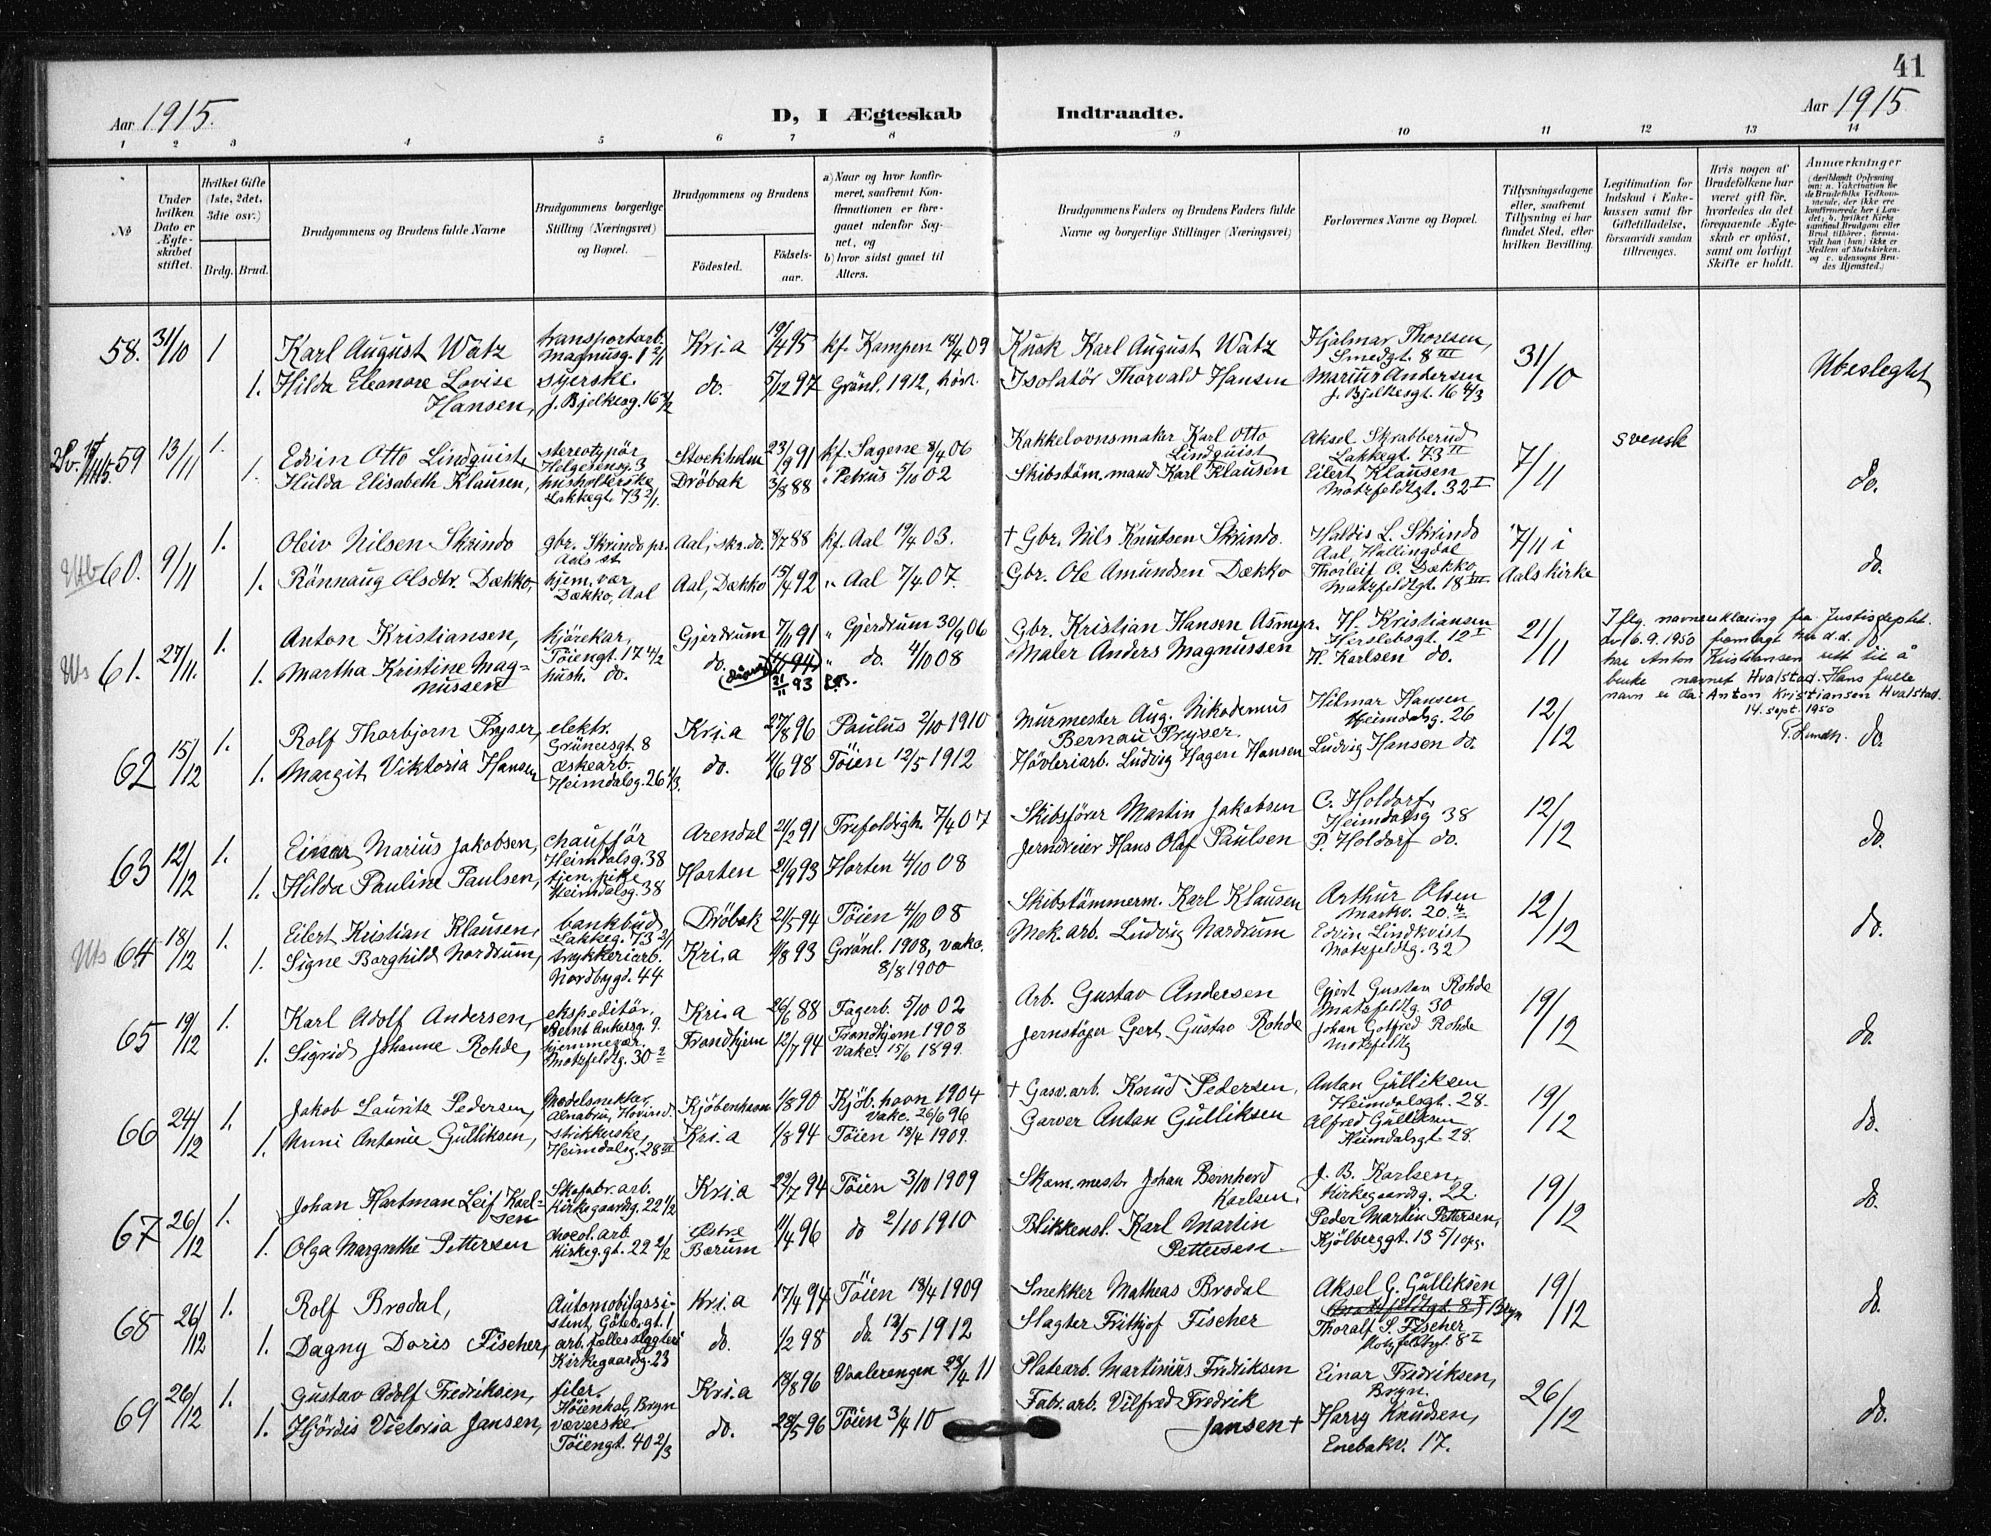 41
Aar 1915.
D, I Ægteskab
Indtraadte.
Aar 1915
1 2 3 4 5 6 7 8 9 10 11 12 13 14
No
Under hvilken Dato er Ægteskabet stiftet.
Hvilket Gifte (1ste, 2det, 3die osv.)
Brdg. Brud.
Brudgommens og Brudens fulde Navne
Brudgommens borgerlige Stilling (Næringsvei) og Bopæl.
Brudgommens og Brudens
Fødested.
Fødselsaar.
a) Naar og hvor konfirmeret, saafremt Konfirmationen er foregaaet udenfor Sognet, og
b) hvor sidst gaaet til Alters.
Brudgommens Faders og Brudens Faders fulde Navne og borgerlige Stillinger (Næringsvei)
Forlovernes Navne og Bopæl.
Tillysningsdagene eller, saafremt Tillysning ei har fundet Sted, efter hvilken Bevilling.
Legitimation for Indskud i Enkekassen samt for Giftetilladelse, forsaavidt saadan tiltrænges.
Hvis nogen af Brudefolkene har været gift før, hvorledes da det foregaaende Ægteskab er opløst, samt om lovligt Skifte er holdt.
Anmærkninger
(deriblandt Oplysning om: a. Vakcination for de Brudefolks Vedkommende, der ikke ere konfirmerede her i Landet; b. hvilket Kirkesamfund Brudgom eller Brud tilhører, forsaavidt han (hun) ikke er Medlem af Statskirken, og c. udensogns Brudes Hjemsted.)
58. 31/10 1 Karl August Watz transportarb. Magnusg. 1 2/1 Kri.a 19/4 95 kf. Kampen 18/4 09 Kusk Karl August Watz Hjalmar Thoresen, Smedgt. 8 III 31/10 Ubeslegtet
1. Hilda Eleonore Lovise Hansen, syerske. J. Bjelkesg. 16 4/2 do. 5/12 97 Grönl. 1912, höst. Isolatör Thorvald Hansen Marius Andersen J. Bjelkesgt. 16 4/3
59 13/11 1. Edvin Otto Lindquist stereotypör Helgesensg. 3 Stockholm 23/9 91 kf. Sagene 8/4 06 Kakkelovnsmaker Karl Otto Lindquist Aksel Skrabberud Lakkegt. 73 II 7/11 svensk do.
1. Hulda Elisabeth Klausen, husholderske Lakkegt. 73 2/1. Dröbak 3/8 88 " Petrus 5/10 02 Skibstöm.mand Karl Klausen Eilert Klausen Motzfeldtgt. 32 I
60. 9/11 1. Oleiv Nilsen Skrindo gbr. Skrindo pr. Aals st Aal, skr.do. 8/7 88 kf. Aal 19/4 03. † Gbr. Nils Knutsen Skrindo. Haldis L. Skrindo Aal, Hallingdal 7/11 i Aals kirke do.
1. Rönnaug Olsdtr. Dækko, hjem. vær Dækko, Aal Aal, Dækko 15/4 92 " Aal 7/4 07. Gbr. Ole Amundsen Dækko Thorleif O. Dækko, Motzfeldtgt. 18 III
61. 27/11. 1. Anton Kristiansen, kjörekar, Töiengt. 17 4/2 Gjerdrum 7/11 91 " Gjerdrum 30/9 06 Gbr. Kristian Hansen Asmyr. H. Kristiansen Herslebsgt. 12 I 21/11
1. Martha Kristine Magnussen hush. do. do. 21/11 93 " do. 4/10 08 Maler Anders Magnussen H. Karlsen do.
Iflg. navneerklæring fra Justisdeptet. av 6.9.1950 fremlagt her d.d. har Anton Kristiansen rett til å bruke navnet Hvalstad. Hans fulle navn er da: Anton Kristiansen Hvalstad. 14. sept. 1950
62 15/12 1. Rolf Thorbjorn Pryser, elektr. Grünersgt. 8 Kri.a 27/8 96 Paulus 2/10 1910 Murmester Aug. Nikodemus Bernau Pryser. Hilmar Hansen Heimdalsg. 26 12/12 do.
1. Margit Viktoria Hansen æskearb. Heimdalsg. 26 4/3. do. 4/6 98 Töien 12/5 1912 Hövleriarb. Ludvig Hagen Hansen Ludvig Hansen do.
63 12/12 1. Einar Marius Jakobsen, chauffør Heimdalsg. 38 Arendal 21/2 91 Trefoldigh. 7/4 07 Skibsförer Martin Jakobsen C. Holdorf, Heimdalsg 38 12/12 do.
1. Hilda Pauline Paulsen, tjen. pike Heimdalsg. 38 Horten 21/9 93 Horten 4/10 08 Jerndreier Hans Olaf Paulsen P. Holdorf do.
64 18/12 1. Eilert Kristian Klausen, bankbud Lakkeg. 73 2/1 Dröbak 21/5 94 Töien 4/10 08 Skibstömmerm. Karl Klausen Arthur Olsen Markv. 20. 4 12/12 do.
1. Signe Borghild Nordrum, trykkeriarb. Nordbygd. 44 Kri.a 4/8 93 Grönl. 1908, vakc. 8/8 1900 Mek. arb. Ludvig Nordrum Edvin Lindkvist Motzfeldtg. 32
65 19/12 1. Karl Adolf Andersen, ekspeditör, Bernt Ankersg. 9. Kri.a 26/6 88 Fagerb. 5/10 02 Arb. Gustav Andersen Gjert Gustav Rohde Motzfeldtg. 30 19/12 do.
1. Sigrid Johanne Rohde, hjemmevær. Motzfeldtg. 30 2 Trondhjem 12/7 94 Trondhjem 1908 vakc. 15/6 1899. Jernstöper Gert Gustav Rohde Johan Gotfred Rohde Motzfeldtg
66 24/12 1. Jakob Lauritz Pedersen, Modelsnekker Alnabru, Hovind Kjöbenhavn 1/8 90 Kjöb.havn 1904 Vakc. 26/6 96 † Gasv.arb. Knud Pedersen, Anton Gulliksen Heimdalsgt. 28. 19/12 do.
1. Nunni Antonie Gulliksen, strikkerske, Heimdalsg. 28 III Kri.a 1/8 94 Töien 13/4 1909. Garver Anton Gulliksen Alfred Gulliksen Heimdalsgt. 28.
67 26/12 1. Johan Hartman Leif Karlsen Skofabr. arb. Kirkegaardsg. 22 1/2 Kri.a 22/7 94 Töien 3/10 1909 Skom.mest. Johan Bernhard Karlsen, J. B. Karlsen, Kirkegaardsg. 22. 19/12 do.
1. Olga Margrethe Pettersen chocol. arb. Kirkeg.gt. 22 2/2 Østre Bærum 11/4 96 do 2/10 1910 Blikkensl. Karl Martin Pettersen. Peder Martin Pettersen, Kjölberggt. 13 5/1 opg.
68 26/12 1. Rolf Brodal, Automobilassistent, Göteb.gt. 1 Kri.a 17/4 94 Töien 18/4 1909 Snekker Matheas Brodal Aksel G. Gulliksen Bryn 19/12 do.
1. Dagny Doris Fischer, arb. fælles slagteri Kirkegaardsg. 23 do. 1/2 98 do. 12/5 1912 Slagter Frithjof Fischer Thoralf S. Fischer Motzfeldtgt. 8 I
69 26/12 1. Gustav Adolf Fredriksen, filer, Höienhal, Bryn Kri.a 13/8 96 Vaalerengen 23/4 11 Platearb. Martinius Fredriksen Einar Fredriksen, Bryn. 26/12 do.
1. Hjördis Victoria Jansen, væverske Töiengt. 40 2/3 do. 28/5 96 Töien 3/4 10 Fabr.arb. Vilfred Fredrik Jansen † Harry Knudsen, Enebakv. 17.